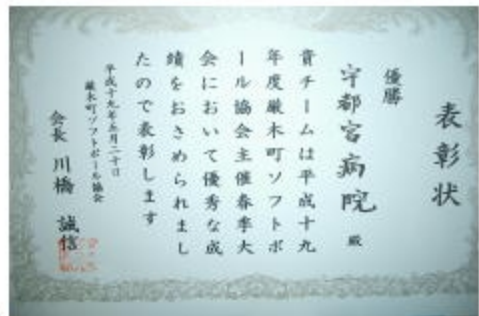 表彰状
優勝
宇都宮病院 殿
貴チームは平成十九
年度厳木町ソフトボ
ール協会主催春季大
会において優秀な成
績をおさめられまし
たので表彰します
平成十九年五月二十日
厳木町ソフトボール協会
会長 川橋 誠信